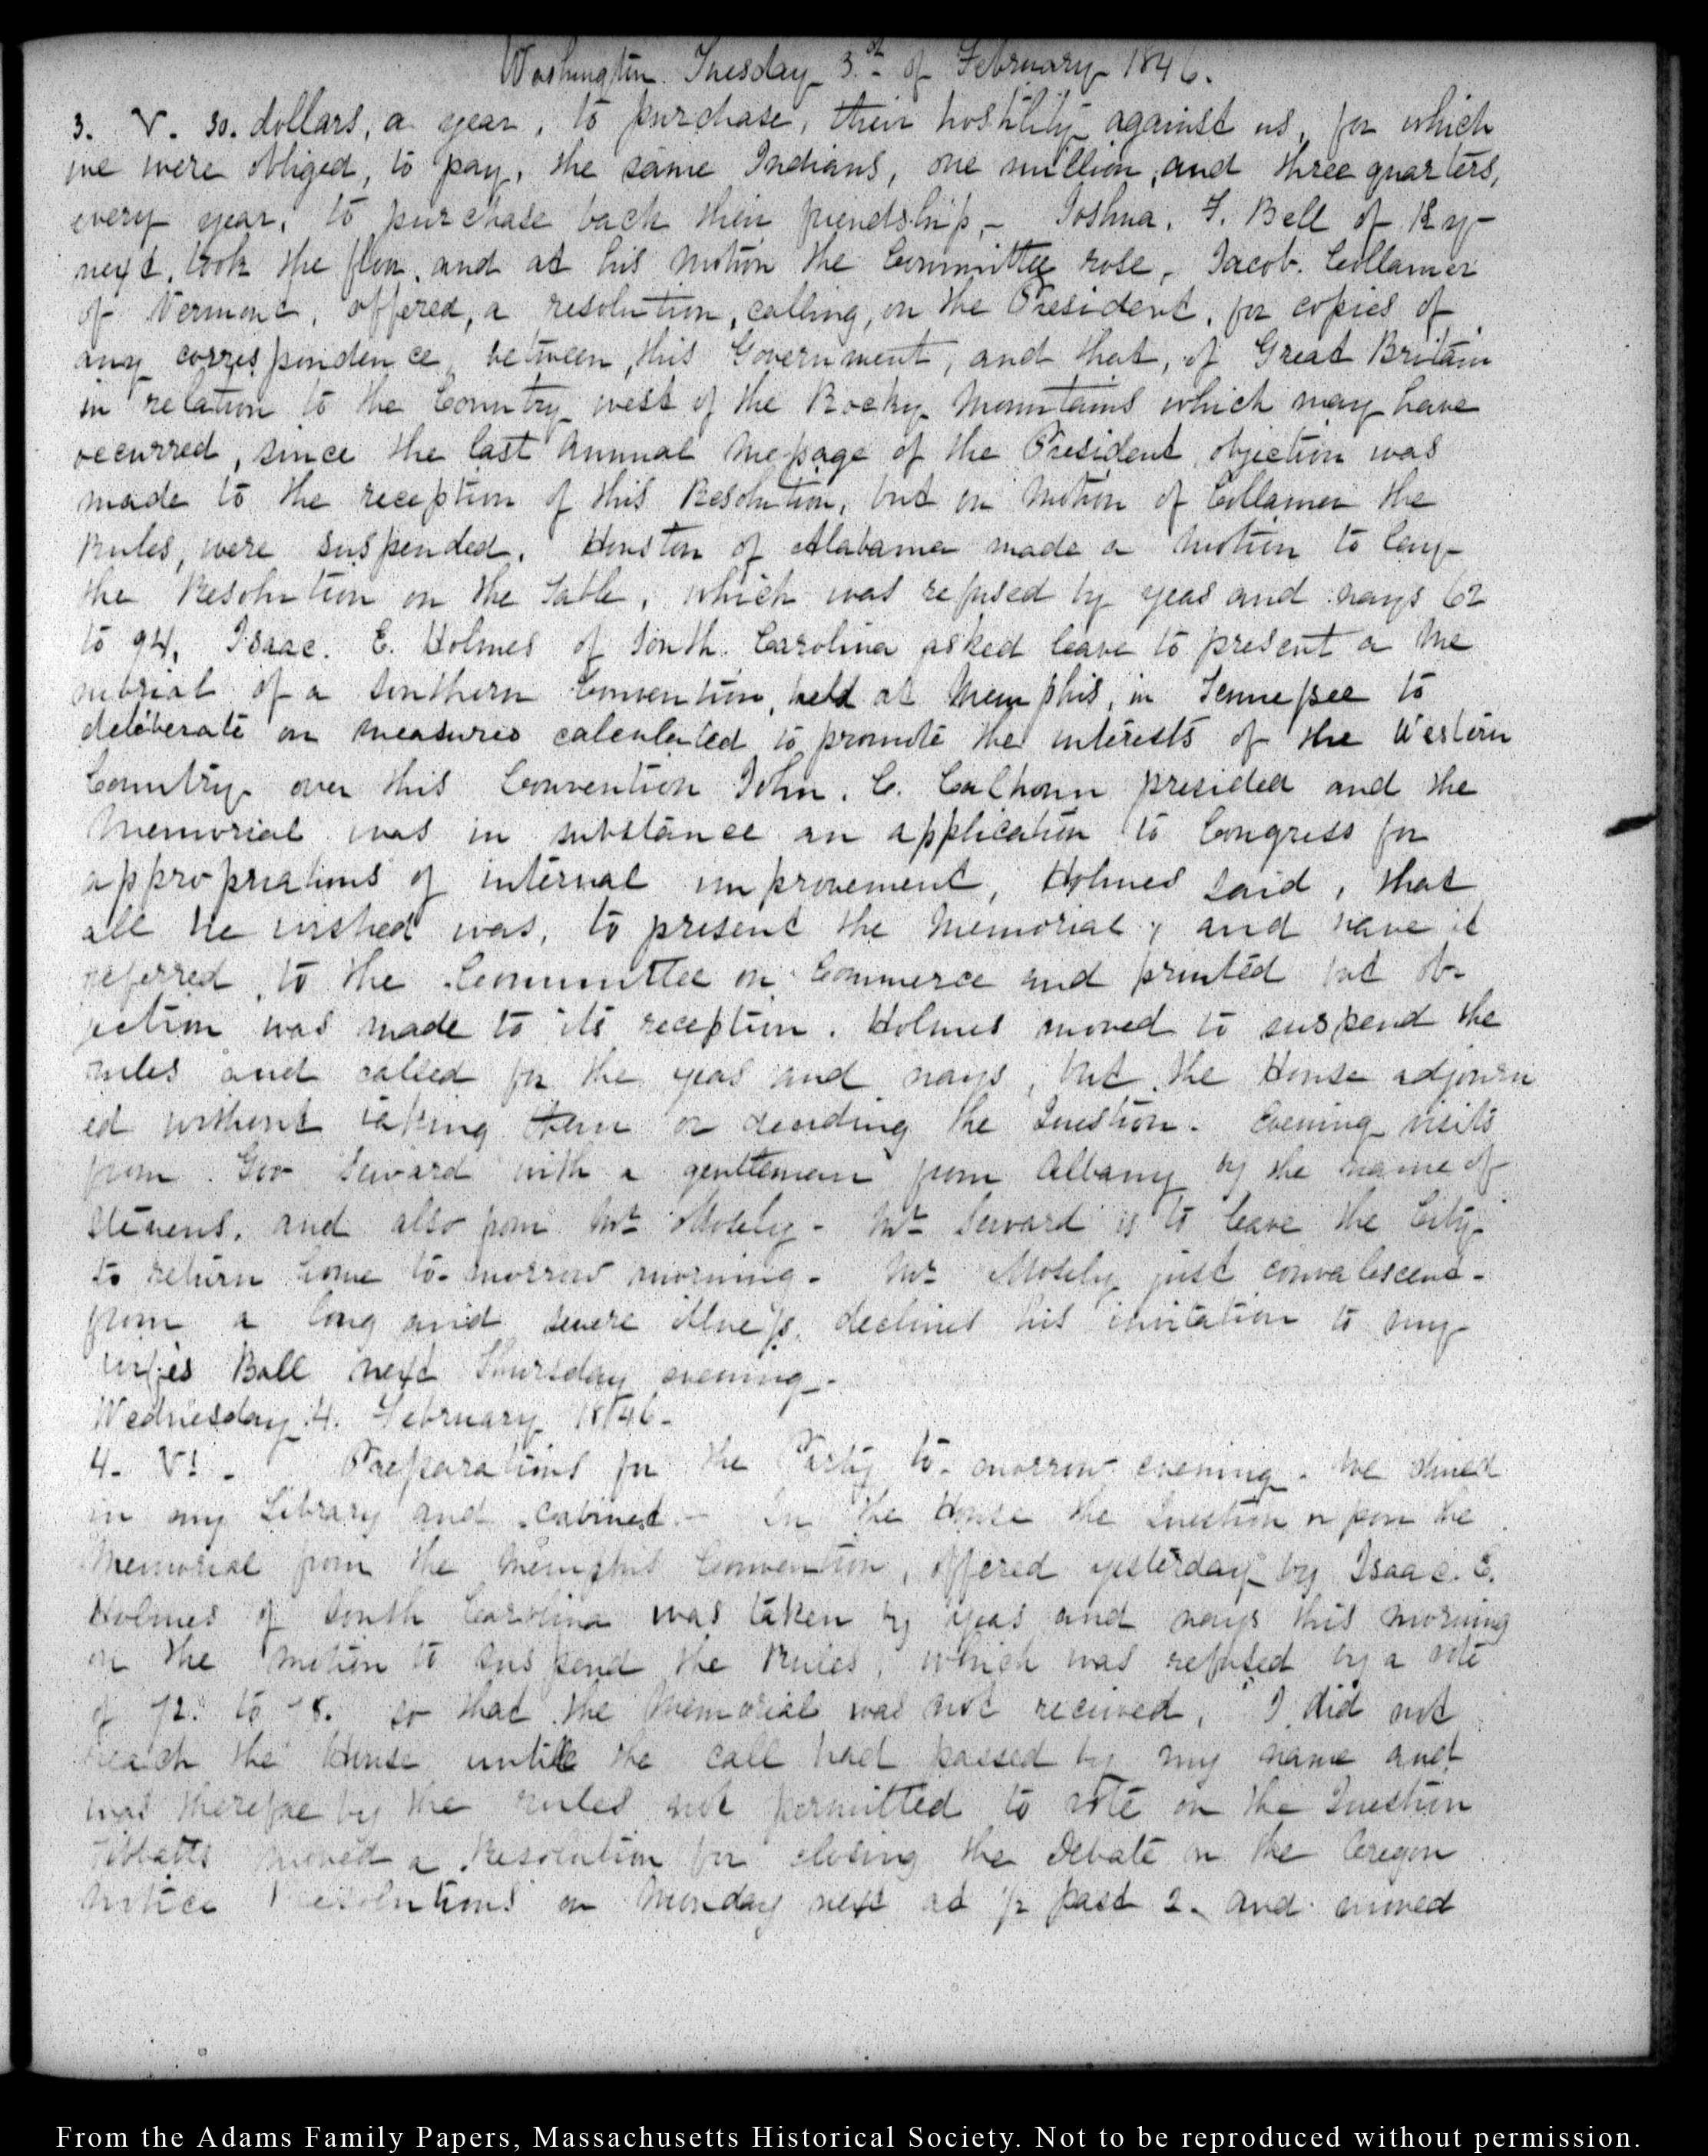 Washington Tuesday 3.d of February 1846.
3. V. 30. dollars, a year, to purchase, their hostility against us, for which
we were obliged, to pay, the same Indians, one million, and three quarters,
every year, to purchase back their friendship,- Joshua. F. Bell of Ky-
next, took the floor, and at his motion the Committee rose,- Jacob. Collamer
of Vermont, offered, a resolution, calling, on the President, for copies of
any correspondence, between, this Government, and that, of Great Britain
in relation to the Country west of the Rocky Mountains which may have
occurred, since the last Annual Message of the President, objection was
made to the reception of this Resolution, but on motion of Collamer the
Rules, were suspended. Houston of Alabama made a motion to lay
the Resolution on the Table, which was refused by yeas and nays 62
to 94. Isaac. E. Holmes of South. Carolina asked leave to present a Me
morial of a Southern Convention, held at Memphis, in Tennessee to
deliberate on measures calculated to promote the interests of the Western
Country over this Convention John. C. Calhoun presided and the
Memorial was in substance an application to Congress for
appropriations of internal improvement, Holmes said, that
all he wished was, to present the Memorial, and have it
referred, to the Committee on Commerce and printed but ob-
jection was made to its reception. Holmes moved to suspend the
rules and called for the yeas and nays, but the House adjourn
ed without taking them or deciding the Question. Evening visits
from Gov Seward with a gentleman from Albany by the name of
Stevens, and also from Mr Mosely- Mr Seward is to leave the City
to return home to-morrow morning- Mr Mosely just convalescent-
from a long and severe illness, declines his invitation to my
wife's Ball next Thursday evening.-
Wednesday 4. February 1846-
4- V. Preparations for the Party to-morrow evening. We dined
in my Library and cabinet.- In the House the Question upon the
Memorial from the Memphis Convention, offered yesterday by Isaac. E.
Holmes of South Carolina was taken by yeas and nays this morning
on the motion to suspend the Rules, which was refused by a vote
of 72. to so that the Memorial was not received, I did not
reach the House untill the call had passed by my name and
was therefore by the rules not permitted to vote on the Question
Tibbatts moved a Resolution for closing the Debate on the Oregon
Notice Resolutions on Monday next at ½ past 2. and moved
From the Adams Family Papers, Massachusetts Historical Society. Not to be reproduced without permission.